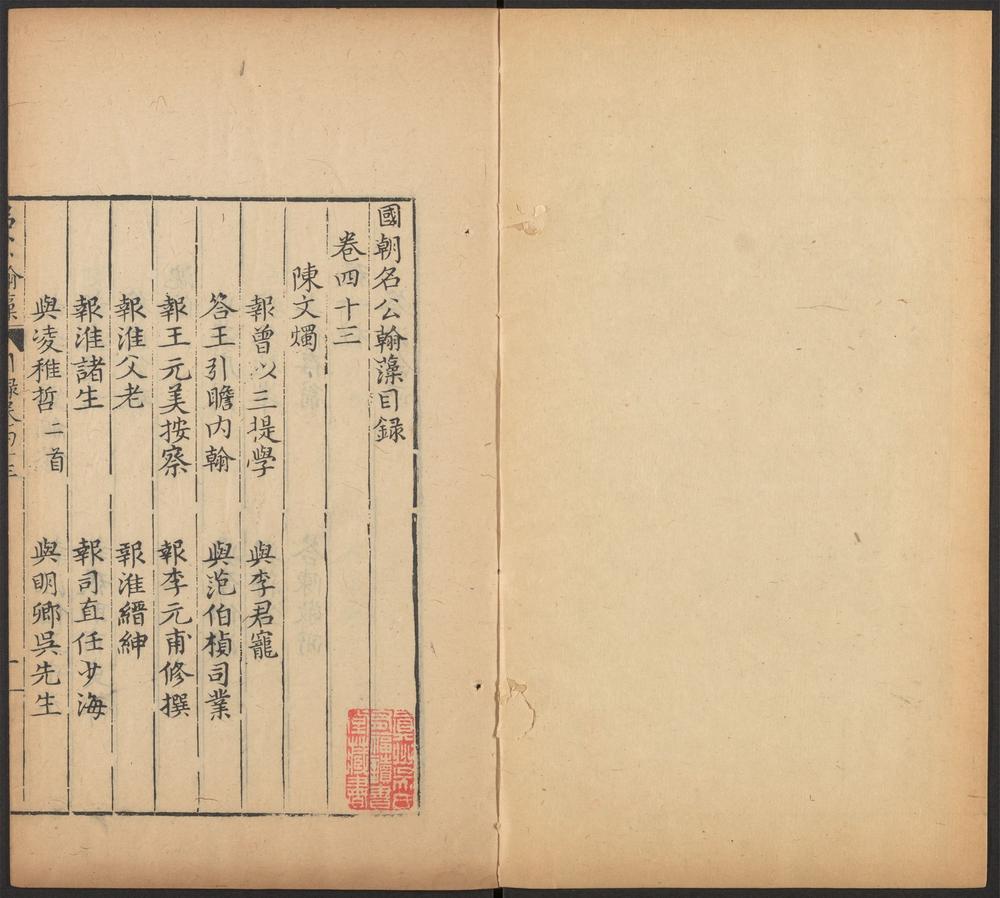 國朝名公翰藻目錄
卷四十三
陳文燭
報曾以三提學 與李君寵
答王引瞻内翰 與范伯楨司業
報王元美按察 報李元甫修撰
報淮父老 報淮縉紳
報淮諸生 報司直任少海
與凌稚哲二首 與明卿吳先生
真州吳氏
有福讀書
堂藏書